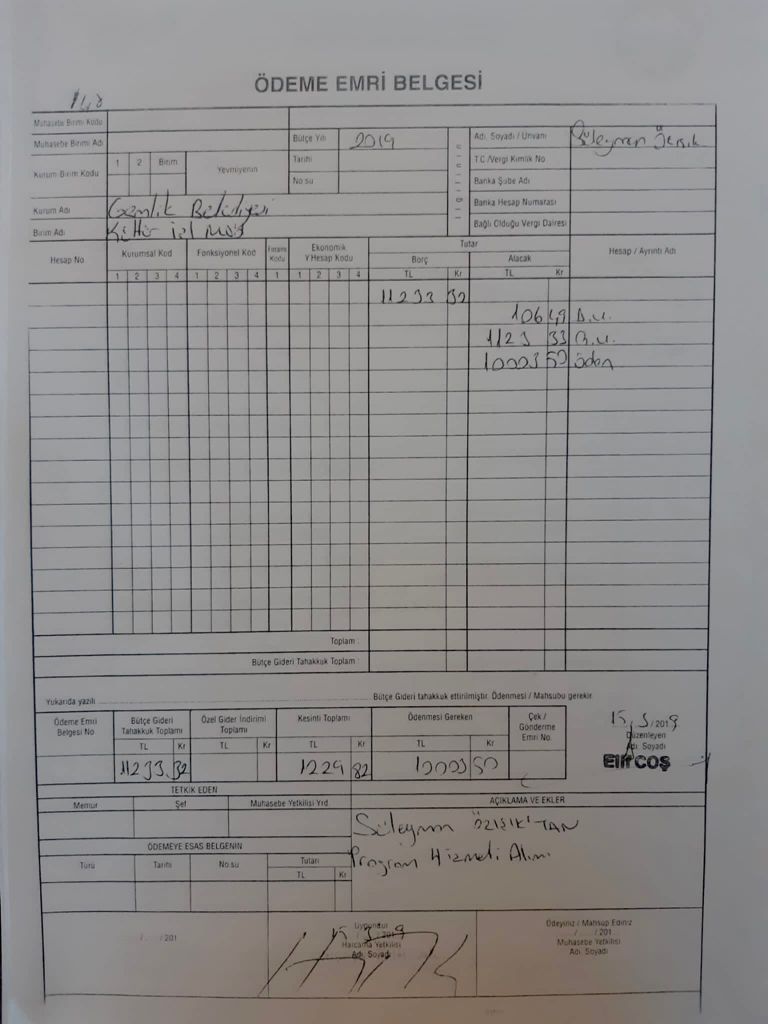 ÖDEME EMRİ BELGESİ
148
Muhasebe Birimi Kodu
Muhasebe Birimi Adı
Bütçe Yılı 2019
Adı, Soyadı / Ünvanı Süleyman
Kurum Birim Kodu
1 2 Birim
Yevmiyenin
Tarihi
No su
T.C./Vergi Kimlik No
Banka Şube Adı
Banka Hesap Numarası
Bağlı Olduğu Vergi Dairesi
Kurum Adı Gemlik Belediyesi
Birim Adı Kültür
Hesap No
Kurumsal Kod
Fonksiyonel Kod
Finans Kodu
Ekonomik Y.Hesap Kodu
Tutar
Borç
Alacak
Hesap / Ayrıntı Adı
1 2 3 4 1 2 3 4 1 1 2 3 4 TL Kr TL Kr
11233 32
106 49 D.V.
1123 33
10003 50 öden
Toplam :
Bütçe Gideri Tahakkuk Toplamı :
Yukarıda yazılı
Bütçe Gideri tahakkuk ettirilmiştir. Ödenmesi / Mahsubu gerekir.
Ödeme Emri Belgesi No
Bütçe Gideri Tahakkuk Toplamı
Özel Gider İndirimi Toplamı
Kesinti Toplamı
Ödenmesi Gereken
Çek / Gönderme Emri No
TL Kr TL Kr TL Kr TL Kr
11233.32 1229 82 10003 50
15/3/2019
Düzenleyen
Adı, Soyadı
Elif COŞ
TETKİK EDEN
AÇIKLAMA VE EKLER
Memur Şef Muhasebe Yetkilisi Yrd.
Süleyman ÖZIŞIK'TAN
Program Hizmeti Alımı
ÖDEMEYE ESAS BELGENİN
Türü Tarihi No su Tutarı
TL Kr
/ /201
Uygundur
15/3/2019
Harcama Yetkilisi
Adı, Soyadı
Ödeyiniz / Mahsup Ediniz
/ /201
Muhasebe Yetkilisi
Adı, Soyadı